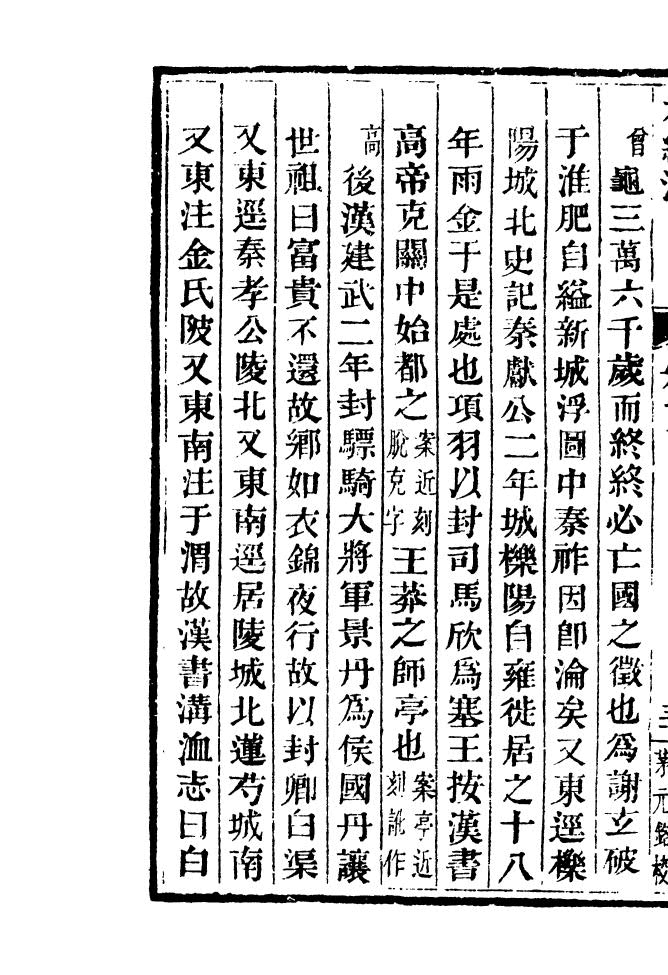 曾龜三萬六千歲而終終必亡國之徵也爲謝玄破
于淮肥自縊新城浮圖中秦祚因卽淪矣又東逕櫟
陽城北史記秦獻公二年城櫟陽自雍徙居之十八
年雨金于是處也項羽以封司馬欣爲塞王按漢書
高帝克關中始都之案近刻脫克字王莽之師亭也案亭近刻訛作
高後漢建武二年封驃騎大將軍景丹爲侯國丹讓
世祖曰富貴不還故鄉如衣錦夜行故以封卿白渠
又東逕秦孝公陵北又東南逕居陵城北蓮芍城南
又東注金氏陂又東南注于渭故漢書溝洫志曰白